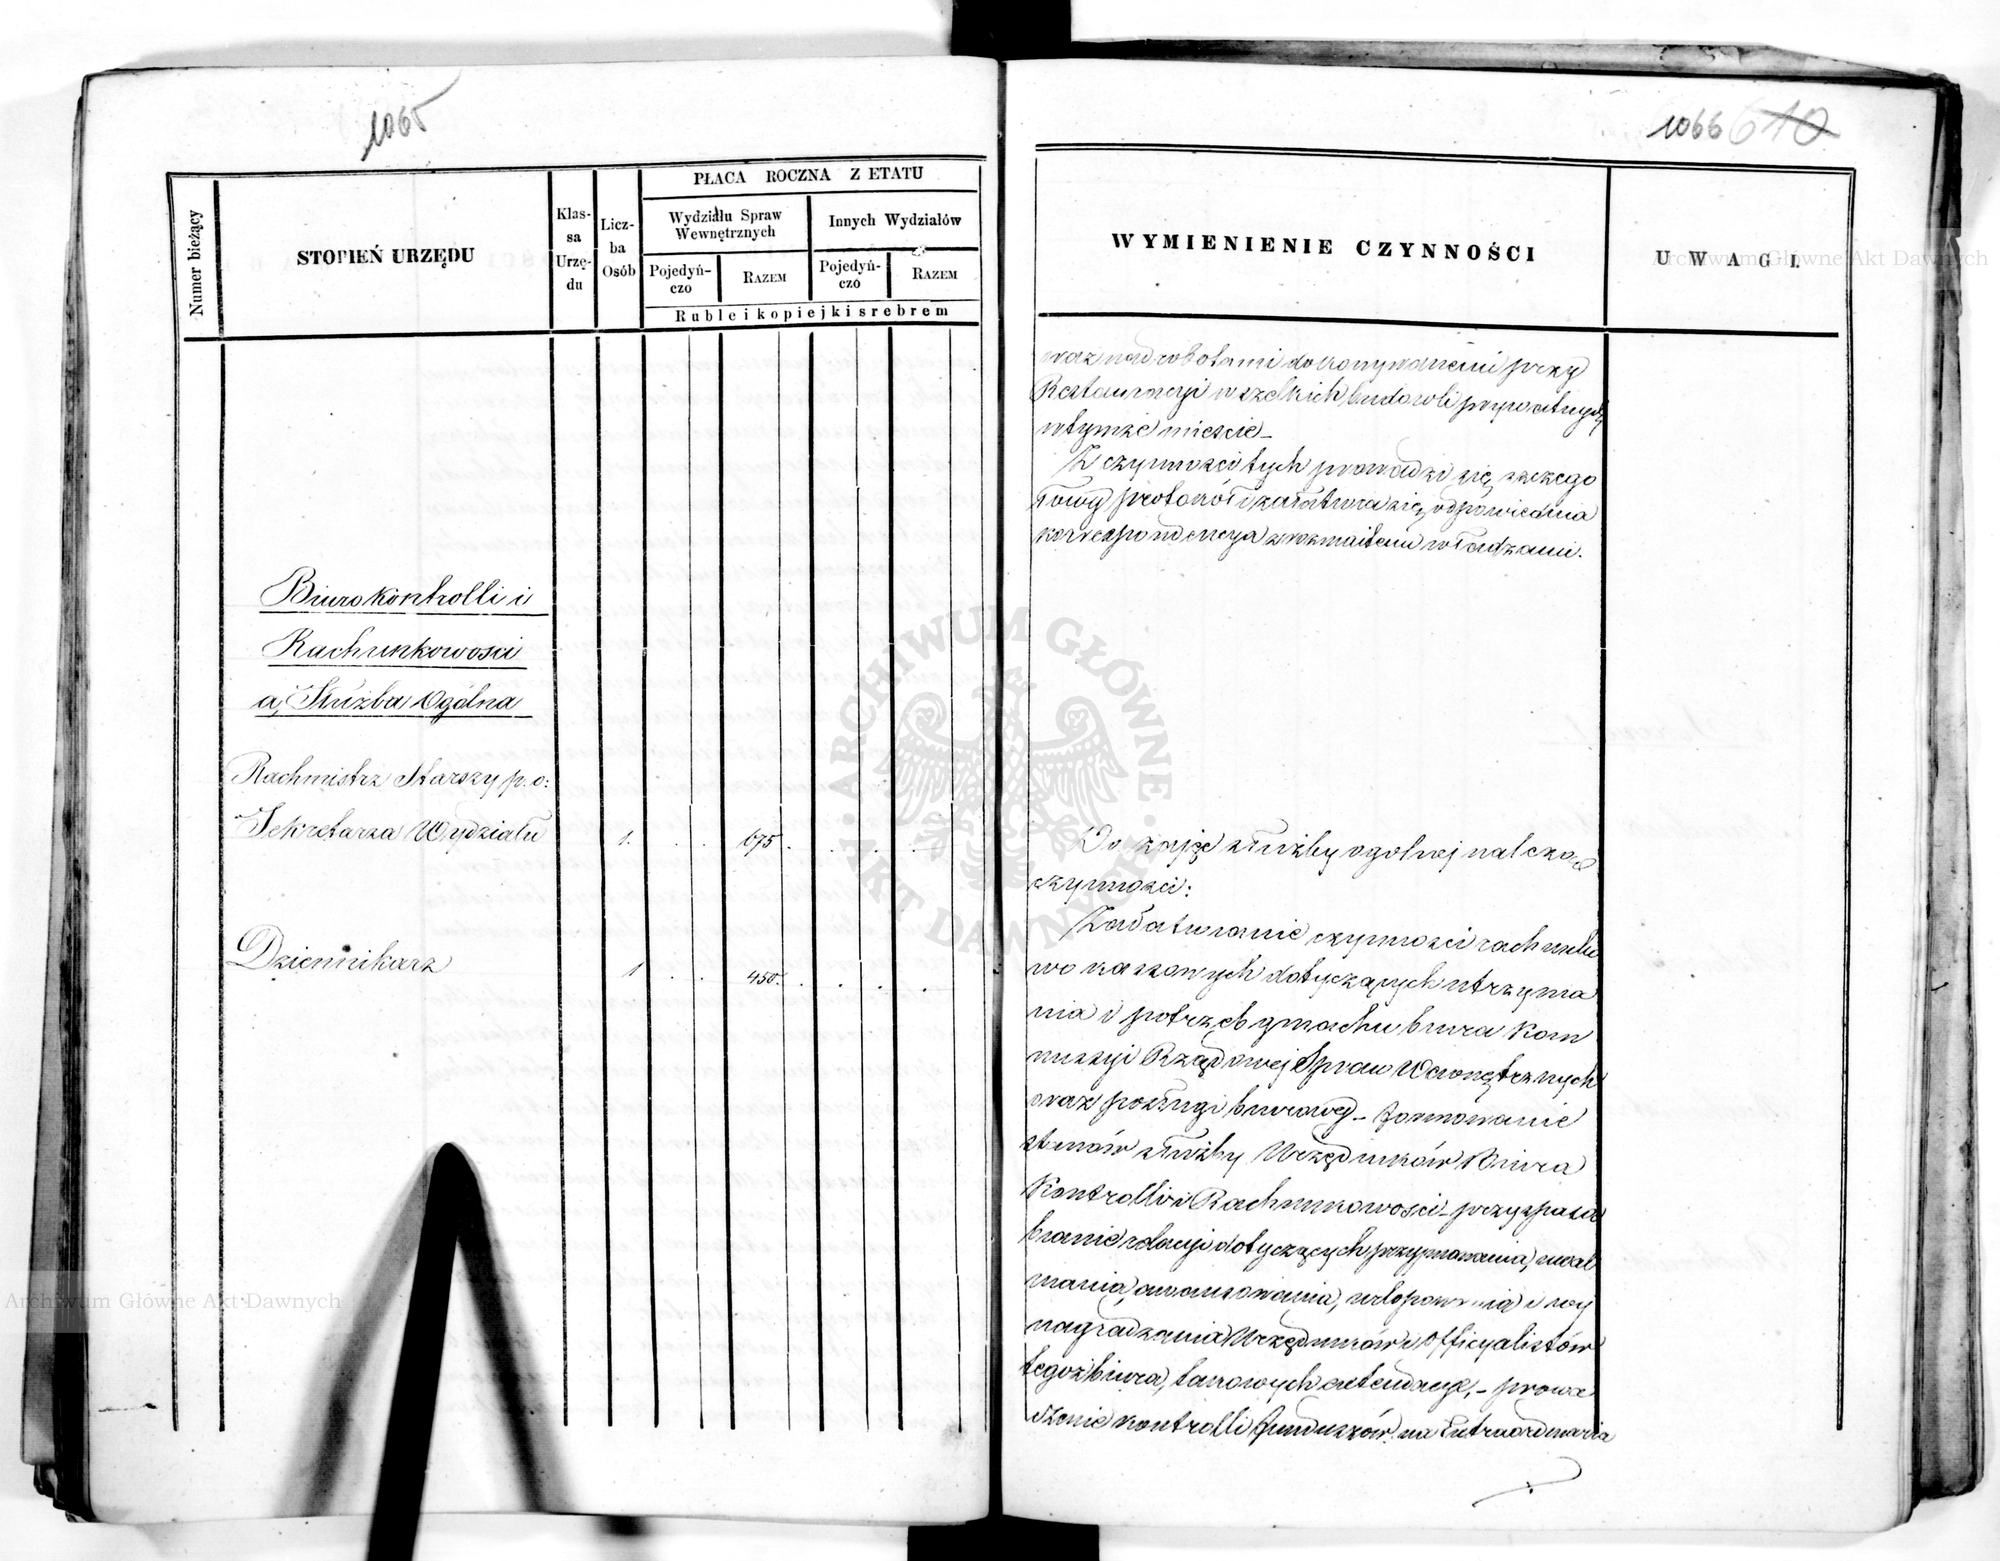 1065
Numer bieżący
STOPIEŃ URZĘDU
Klas-
sa
Urzę-
du
Licz-
ba
Osób
PŁACA ROCZNA Z ETATU
Wydziału Spraw
Wewnętrznych
Innych Wydziałów
Pojedyń-
czo
RAZEM
Pojedyń-
czo
RAZEM
Ruble i kopiejki srebrem
Biuro Kontrolli i
Rachunkowości
a, Służba Ogólna
Rachmistrz Starszy p. o:
Sekretarza Wydziału 1. 675
Dziennikarz 1 450
1066 610
WYMIENIENIE CZYNNOŚCI
UWAGI.
oraz nad robotami dokonywanemi przy
Restauracyi wszelkich budowli prywatnych
w tymże mieście_
Z czynności tych prowadzi się szczegó
łowy protokół i załatwia się odpowiednia
korrespondencya z rozmaitemi władzami.
Do zajęć służby ogólnej należą
czynności:
Załatwianie czynności rachunko
wo kassowych dotyczących utrzyma
nia i potrzeb gmachu biura Kom
missyi Rządowej Spraw Wewnętrznych
oraz posługi biurowej_ formowanie
stanów służby Urzędników Biura
Kontrolli i Rachunkowości_ przysposa
bianie relacyi dotyczących przyjmowania, uwal
niania, awansowania, urlopowania i wy
nagradzania Urzędników i Officyalistów
tegoż biura, tudzież etendencyi,_ prowa
dzenie kontrolli funduszów na Extraordinaria
ARCHIWUM GŁÓWNE AKT DAWNYCH
Archiwum Główne Akt Dawnych
Archiwum Główne Akt Dawnych